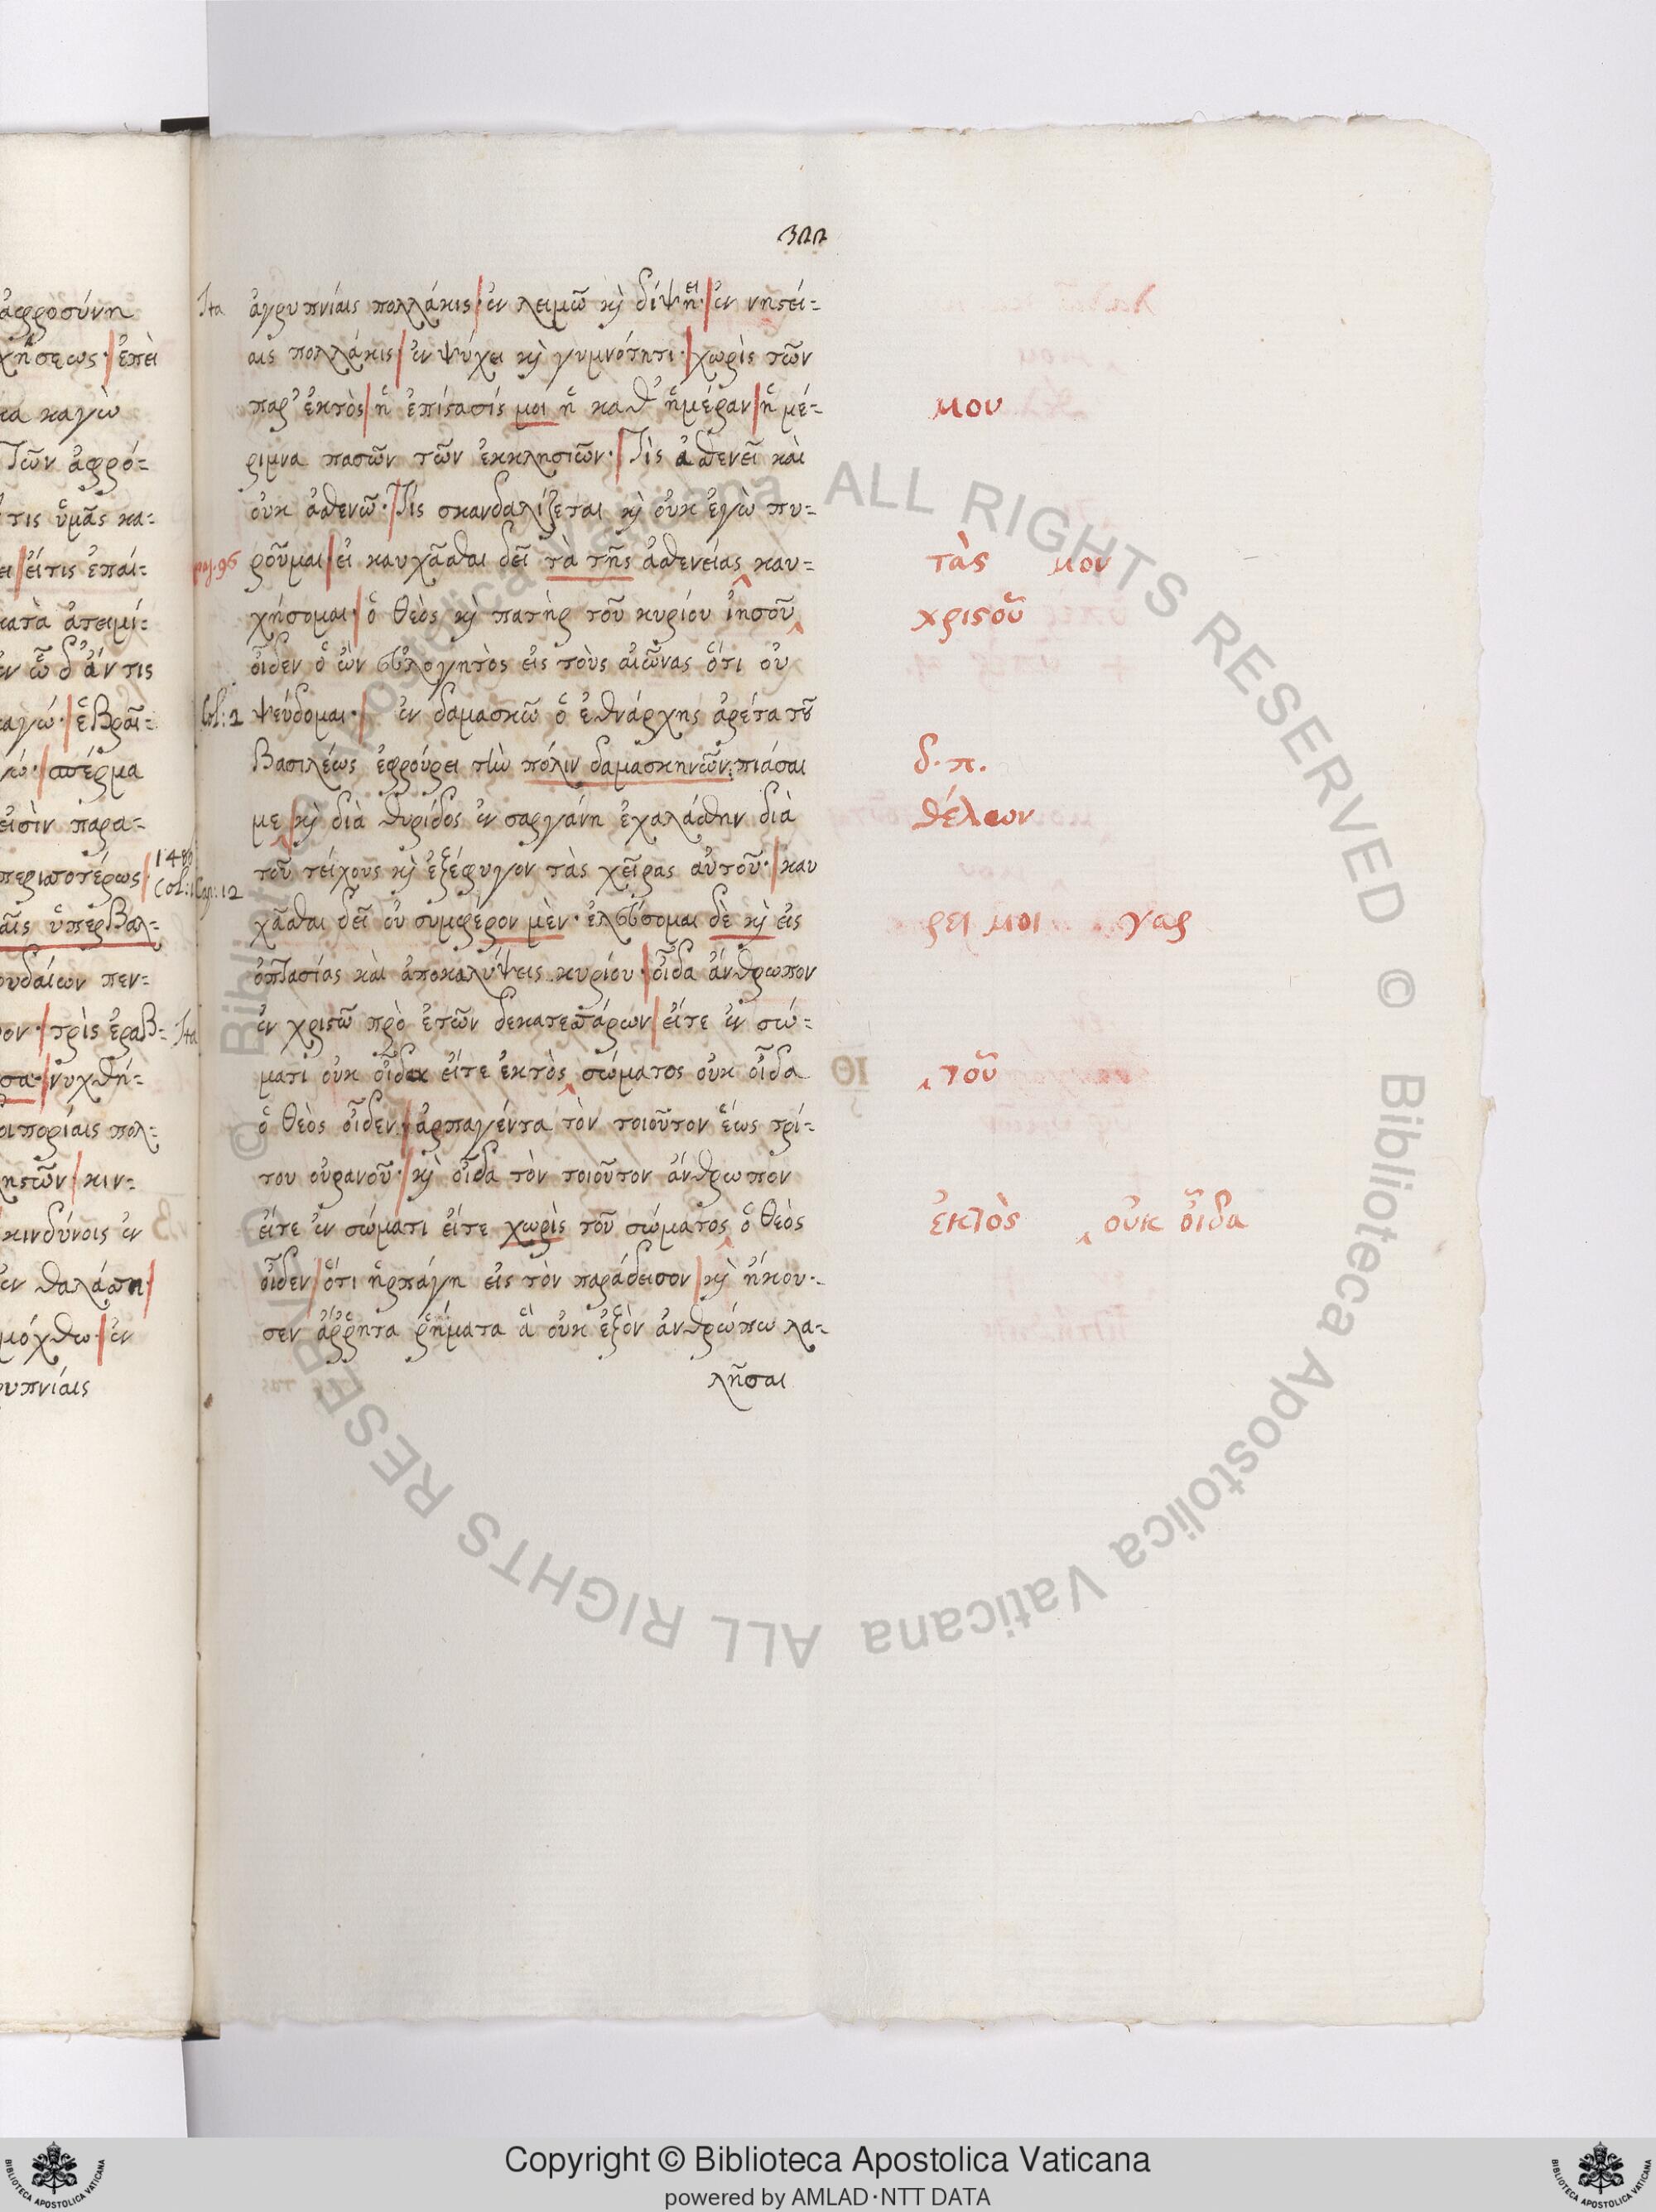 322
Ita ἀγρυπνίαις πολλάκις· ἐν λειμῶ κὶ δίψη· ἐν νηστεί=
ει
αις πολλάκις ἐν ψύχει κὶ γυμνότητι· χωρὶς τῶν
παρ' ἐκτὸς ἡ ἐπίστασίς μοι ἡ καθ' ἡμέραν ἡ μέ= μου
ριμνα πασῶν τῶν ἐκκλησιῶν· Τὶς ἀσθενεῖ καὶ
οὐκ ἀσθενῶ· Τίς σκανδαλίζεται κὶ οὐκ ἐγὼ πυ=
pag. 96 ροῦμαι εἰ καυχᾶσθαι δεῖ τὰ τῆς ἀσθενείας καυ= τὰς μου
χήσομαι· ὁ θεὸς κὶ πατὴρ τοῦ κυρίου ἰησοῦ χριστοῦ
οἶδεν ὁ ὢν εὐλογητὸς εἰς τοὺς αἰῶνας ὅτι οὐ
Col: 2 ψεύδομαι· ἐν δαμασκῶ ὁ ἐθνάρχης ἀρέτα τοῦ
βασιλέως ἐφρούρει τὴν πόλιν δαμασκηνῶν πιάσαι δ. π.
με κὶ διὰ θυρίδος ἐν σαργάνη ἐχαλάσθην διὰ θέλων
τοῦ τείχους κὶ ἐξέφυγον τὰς χεῖρας αὐτοῦ· καυ
Cap: 12 χᾶσθαι δεῖ οὐ συμφέρον μὲν· ἐλεύσομαι δὲ κὶ εἰς ρει μοι γαρ
ὀπτασίας καὶ ἀποκαλύψεις κυρίου· οἶδα ἄνθρωπον
Ita ἐν χριστῶ πρὸ ἐτῶν δεκατεσσάρων εἴτε ἐν σώ=
ματι οὐκ οἶδα εἴτε ἐκτὸς σώματος οὐκ οἶδα τοῦ
ὁ θεὸς οἶδεν· ἁρπαγέντα τὸν τοιοῦτον ἕως τρί=
του οὐρανοῦ· κὶ οἶδα τὸν τοιοῦτον ἄνθρωπον
εἴτε ἐν σώματι εἴτε χωρὶς τοῦ σώματος ὁ θεὸς ἐκτὸς οὐκ οἶδα
οἶδεν ὅτι ἡρπάγη εἰς τὸν παράδεισον κὶ ἤκου=
σεν ἄῤῥητα ῥήματα ἃ οὐκ ἐξὸν ἀνθρώπω λα=
λῆσαι
ἀφροσύνη
χήσεως· ἐπεὶ
κα καγὼ
Τῶν ἀφρό=
τις ὑμᾶς κα=
ει εἴτις ἐπαί=
κατὰ ἀτειμί=
ἐν ὧ δ' ἄν τις
καγώ· ἑβραῖ=
σπέρμα
εἰσὶν παρα=
περισσοτέρως·
αῖς ὑπερβαλ=
ουδαίων πεν=
ον· τρὶς ἐραβ=
σα· νυχθή=
οιπορίαις πολ=
ληστῶν κιν=
κινδύνοις ἐν
ἐν θαλάσση
μόχθω· ἐν
υπνίαις
© Biblioteca Apostolica Vaticana ALL RIGHTS RESERVED © Biblioteca Apostolica Vaticana ALL RIGHTS RESERVED
Copyright © Biblioteca Apostolica Vaticana
powered by AMLAD·NTT DATA
BIBLIOTECA APOSTOLICA VATICANA
BIBLIOTECA APOSTOLICA VATICANA